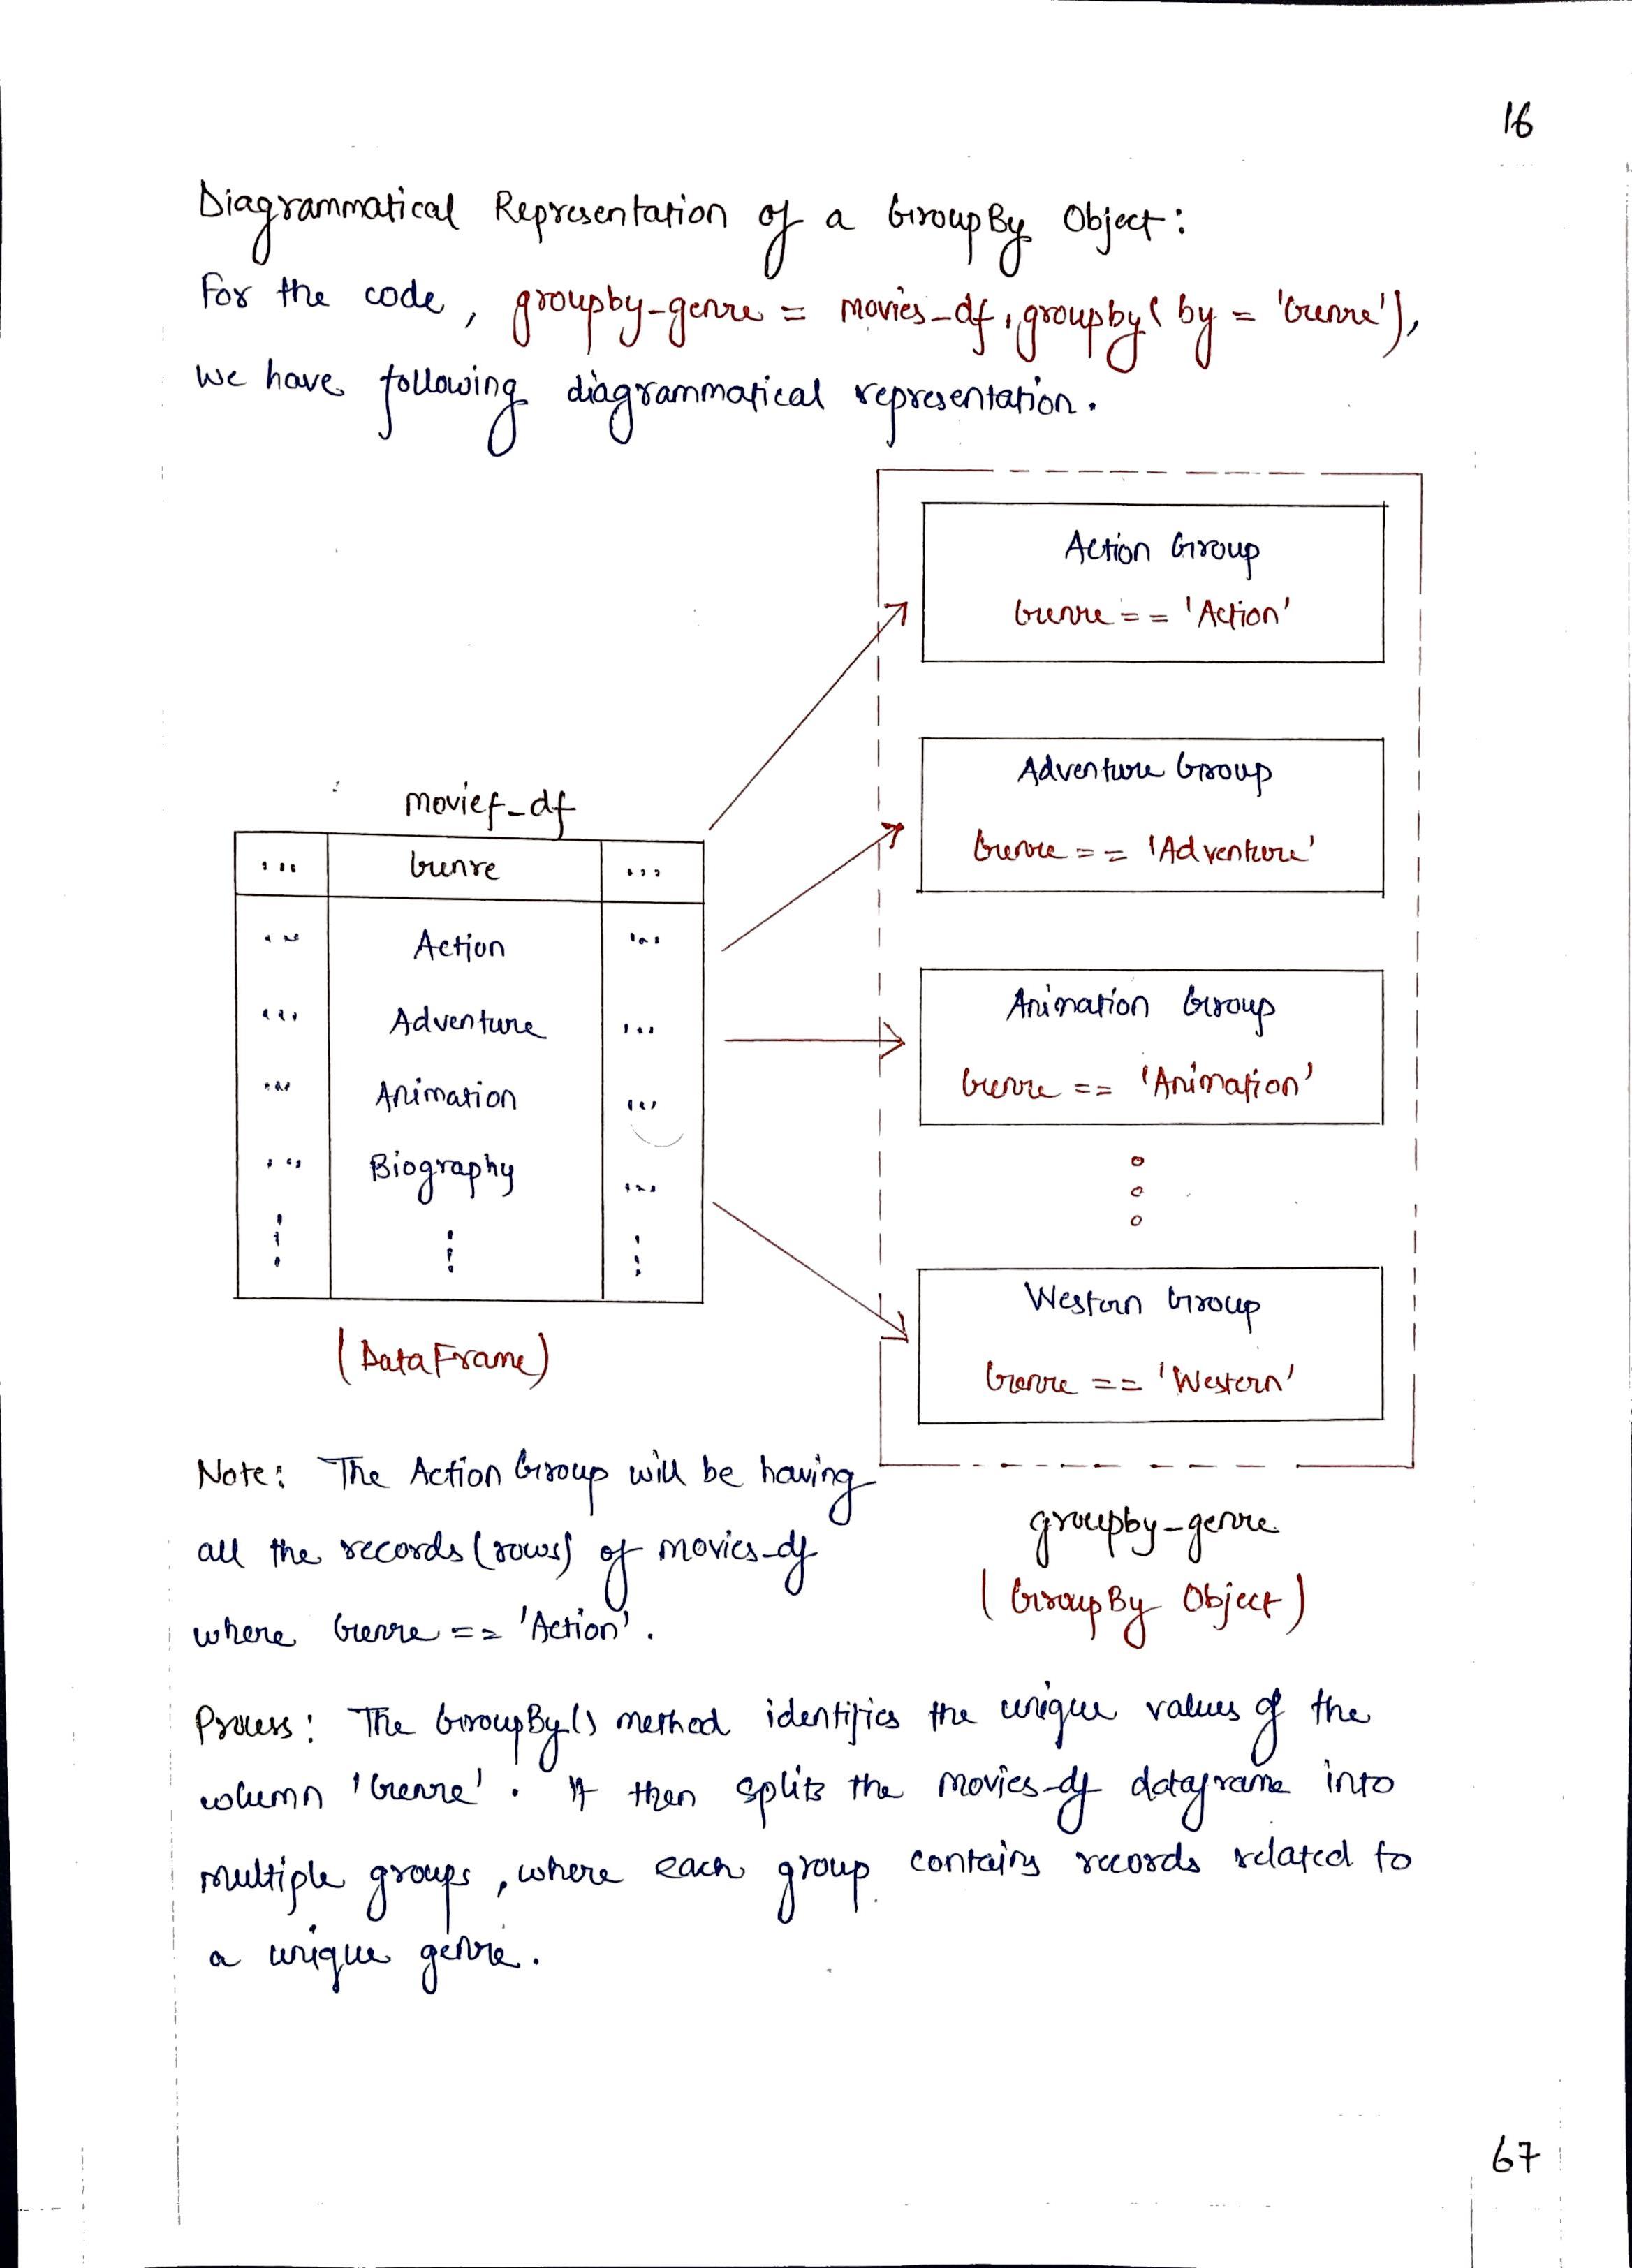 16
Diagrammatical Representation of a GroupBy Object:
For the code, groupby-genre = movies_df.groupby(by = 'Genre'),
we have following diagrammatical representation.
Action Group
Genre == 'Action'
Adventure Group
Genre == 'Adventure'
Animation Group
Genre == 'Animation'
Western Group
Genre == 'Western'
movies_df
... Genre ...
... Action ...
... Adventure ...
... Animation ...
... Biography ...
(DataFrame)
groupby-genre
(GroupBy Object)
Note: The Action Group will be having
all the records (rows) of movies_df
where Genre == 'Action'.
Process: The GroupBy() method identifies the unique values of the
column 'Genre'. It then splits the movies_df dataframe into
multiple groups, where each group contains records related to
a unique genre.
67